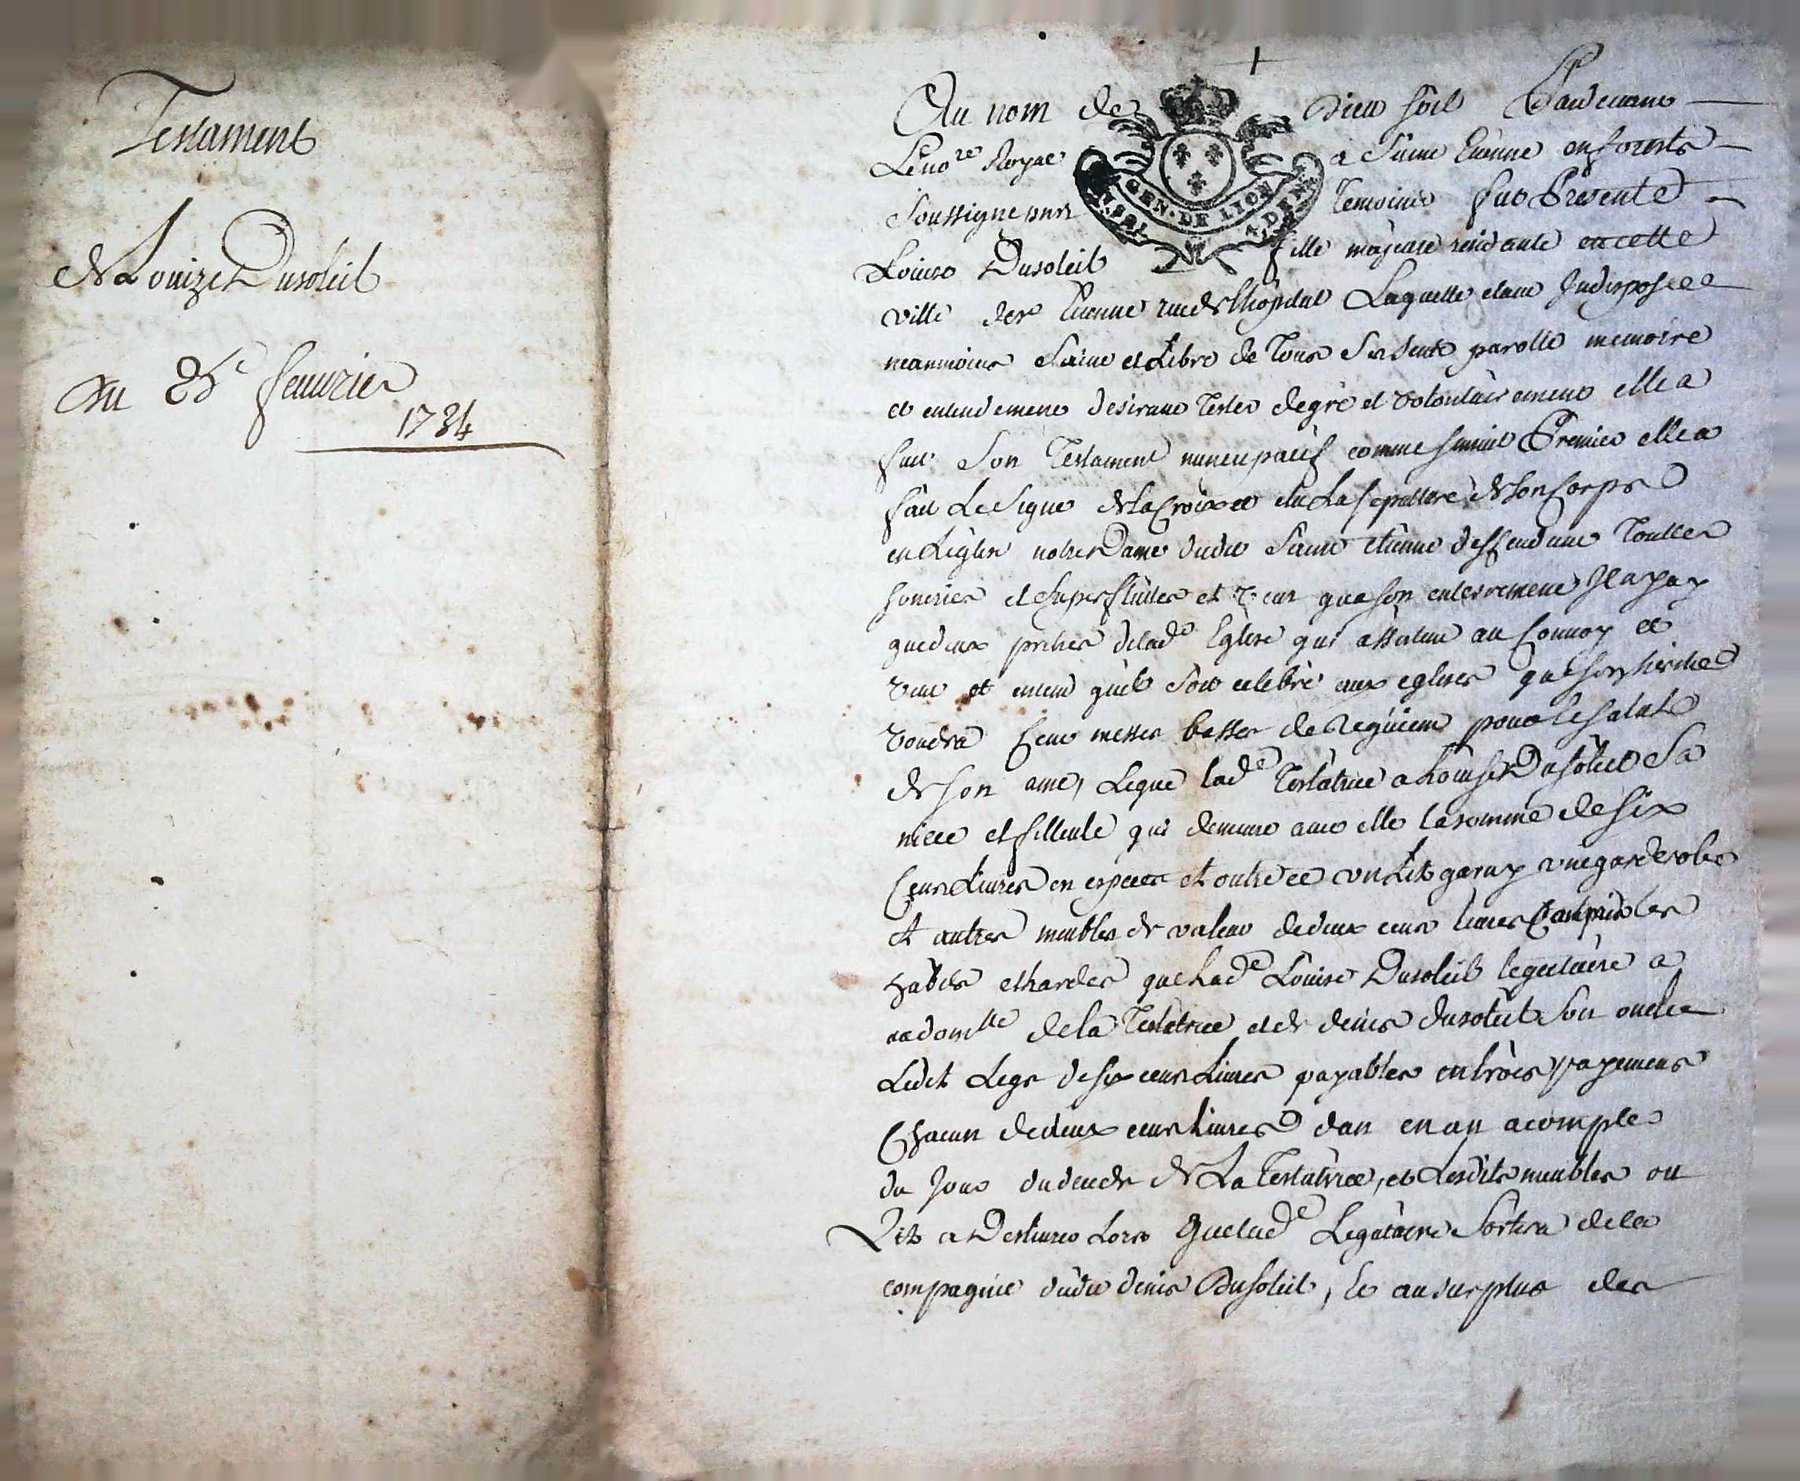 Testament
de Louize Dusoleil
Du 25e feuurier
1734
Au nom de Dieu soit Pardeuant
Le no.re Royal a Saint Etienne en forests
Soussigné temoins fut Presente
Louise Dusoleil fille majeure residante en cette
ville de St Etienne rue de Lhopital Laquelle etant Indisposeee
neanmoins Saine et Libre de tous Ses sents parolle memoire
et entendement desirant tester de gré et volontairement elle a
fait Son Testament nuncupatif comme sensuit Premier elle a
fait Le Signe de la Croix et elu La sepulture de son Corps
en Leglise notre Dame dudit Saint etienne deffendant touttes
soneries et superfluites et veut qua son enterrement Il nayt
que deux pretres de lad.e Eglise qui assistent au Convoy et
veut et entend quil soit celebré aux eglises que son heritier
voudra Cent messes basses de Requiem pour le salut
de son ame, Legue lad.e Testatrice a Louise Dusoleil Sa
niece et filleule qui demeure auec elle la somme de six
Cens Liures en especes et outre ce un Lit garny une garderobe
et autres meubles de valeur de deux cens liures Compris les
habits et hardes que Lad.e Louise Dusoleil legataire a
au domlle de la Testatrice et de denis dusoleil Son oncle
Ledit Legs de six cens Liures payables en trois payemens
Chacun de deux cens Liures dan en an a compter
du Jour du deces de La Testatrice, et Lesdits meubles ou
Lit a Destiner Lors que lad.e Legataire Sortira de la
compagnie dudit denis Dusoleil, et au surplus des
GEN. DE LION